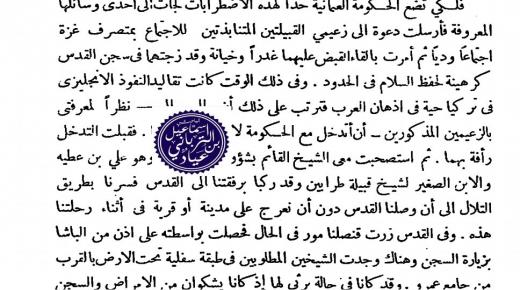 فلكي تضع الحكومة العثمانية حداً لهذه الاضطرابات لجأت الى احدى وسائلها
المعروفة فأرسلت دعوة الى زعيمي القبيلتين المتنابذتين للاجتماع بمتصرف غزة
اجتماعاً ودياً ثم أمرت بالقاء القبض عليهما غدراً وخيانة وقد زجتهما في سجن القدس
كرهينة لحفظ السلام في الحدود . وفي ذلك الوقت كانت تقاليد النفوذ الانجليزى
في تركيا حية في اذهان العرب فترتب على ذلك نظراً لمعرفتي
بالزعيمين المذكورين – أن أتدخل مع الحكومة لا . فقبلت التدخل
رأفة بهما . ثم استصحبت معى الشيخ القائم بشؤو وهو علي بن عطيه
والابن الصغير لشيخ قبيلة طرابين وقد ركبا برفقتنا الى القدس فسرنا بطريق
التلال الى أن وصلنا القدس دون أن نعرج على مدينة أو قرية في أثناء رحلتنا
هذه . وفى القدس زرت قنصلنا مور فى الحال فحصلت بواسطته على اذن من الباشا
بزيارة السجن وهناك وجدت الشيخين المطلوبين في طبقة سفلية تحت الارض بالقرب
من جامع عمرو . وقد كانا في حالة يرثى لها إذ كانا يشكوان من الامراض والسجن